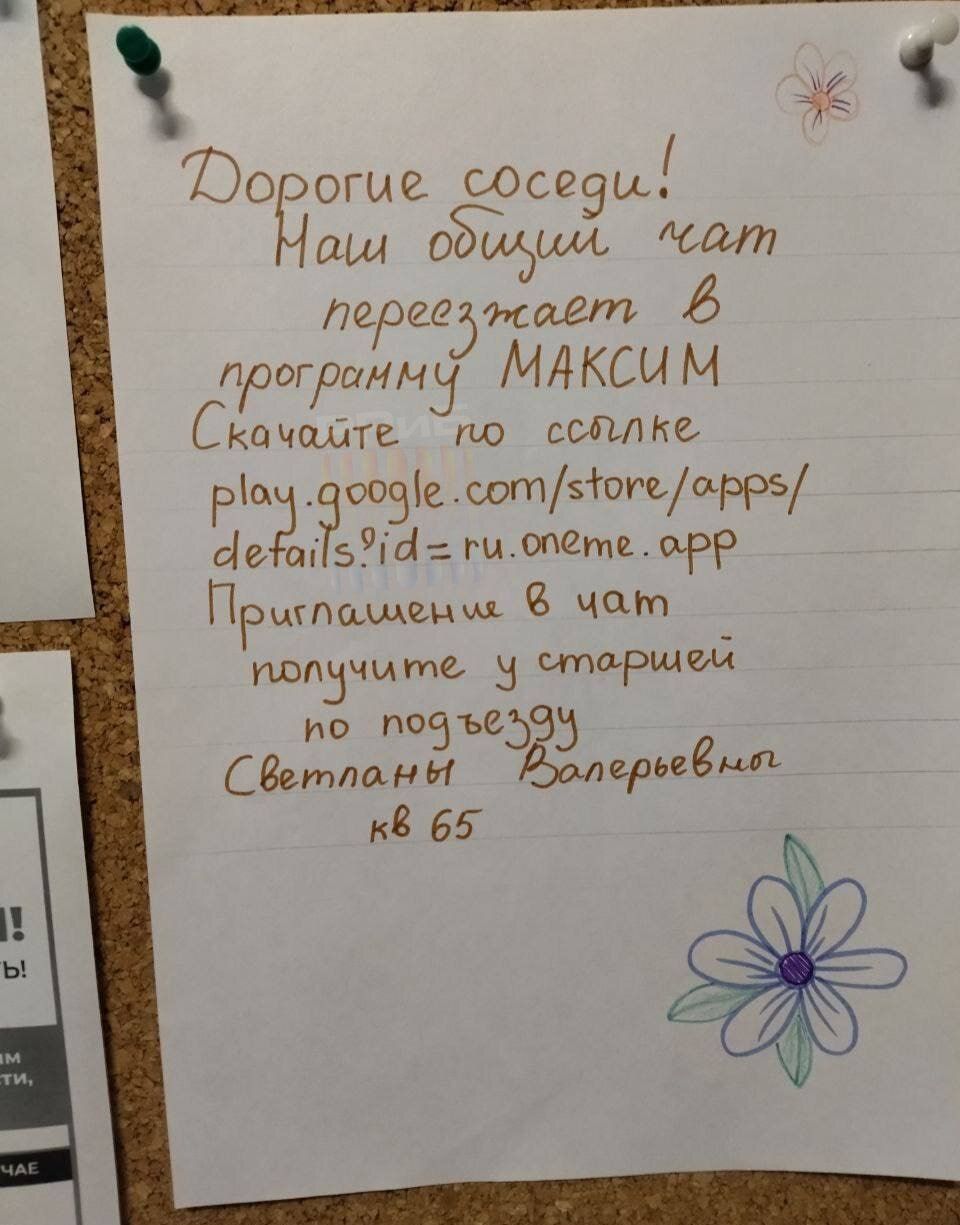 Дорогие соседи!
Наш общий чат
переезжает в
программу МАКСИМ
Скачайте по ссылке
play.google.com/store/apps/
details?id=ru.oneme.app
Приглашение в чат
получите у старшей
по подъезду
Светланы Валерьевны
кв 65
И!
Ь!
ти,
ЧАЕ